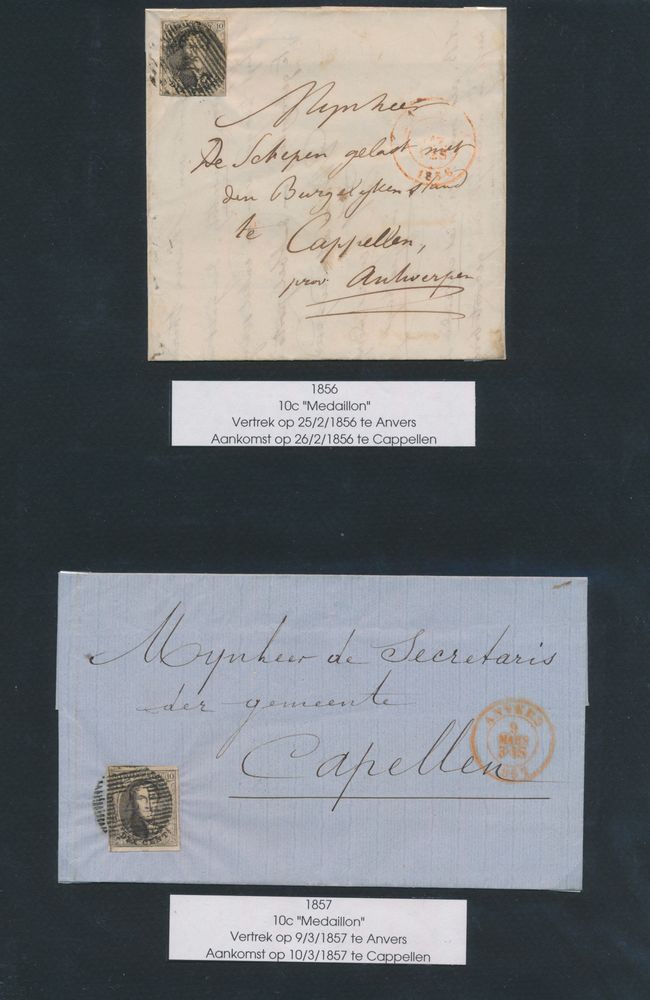 10
Mynheer
De Schepen gelast met
den Burgelyken stand
te Cappellen,
prov Antwerpen
1856
1856
10c "Medaillon"
Vertrek op 25/2/1856 te Anvers
Aankomst op 26/2/1856 te Cappellen
Mynheer de Secretaris
der gemeente
Capellen
ANVERS
9
MARS
10
DIX CENT
1857
10c "Medaillon"
Vertrek op 9/3/1857 te Anvers
Aankomst op 10/3/1857 te Cappellen